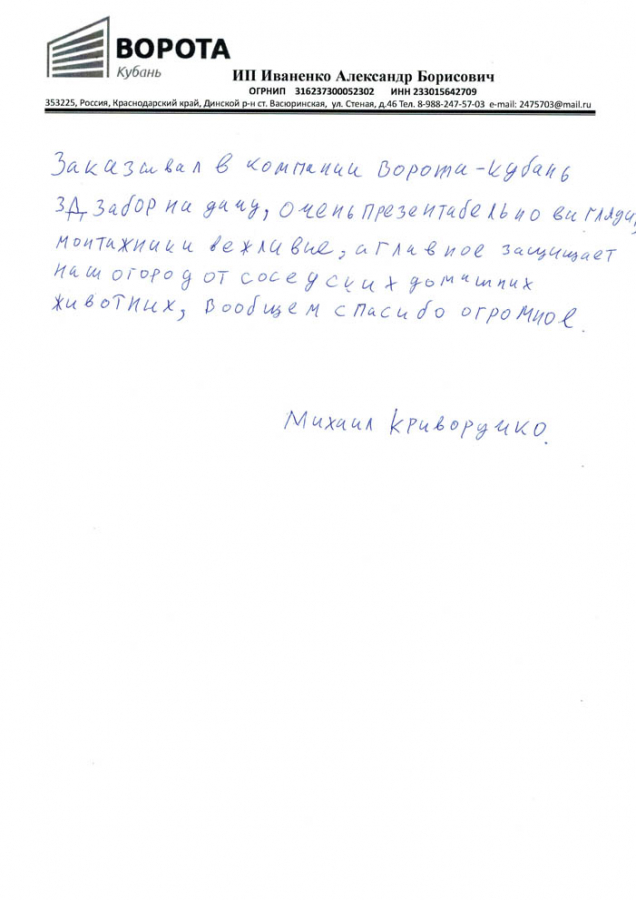 ВОРОТА
Кубань
ИП Иваненко Александр Борисович
ОГРНИП 316237300052302 ИНН 233015642709
353225, Россия, Краснодарский край, Динской р-н ст. Васюринская, ул. Стеная, д.46 Тел. 8-988-247-57-03 e-mail: 2475703@mail.ru
Заказывал в компании Ворота-Кубань
3Д забор на дачу, очень презентабельно вигляди,
монтажники вежливые, а главное защищает
наш огород от соседских домашних
животних, вообщем спасибо огромное.
Михаил Криворучко.